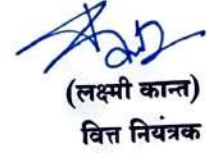 (लक्ष्मी कान्त)
वित्त नियंत्रक